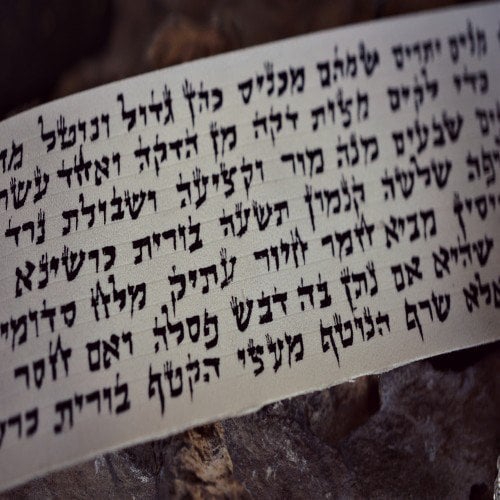 מנים יתרים שמהם מכניס כהן גדול ונוטל
כדי לקים מצות דקה מן הדקה ואחד עשר
שבעים מנה מור וקציעה ושבולת נרד
שלשה קנמון תשעה בורית כרשינא
מביא חמר חיור עתיק מלח סדומי
שהיא אם נתן בה דבש פסלה ואם חסר
אלא שרף הנוטף מעצי הקטף בורית